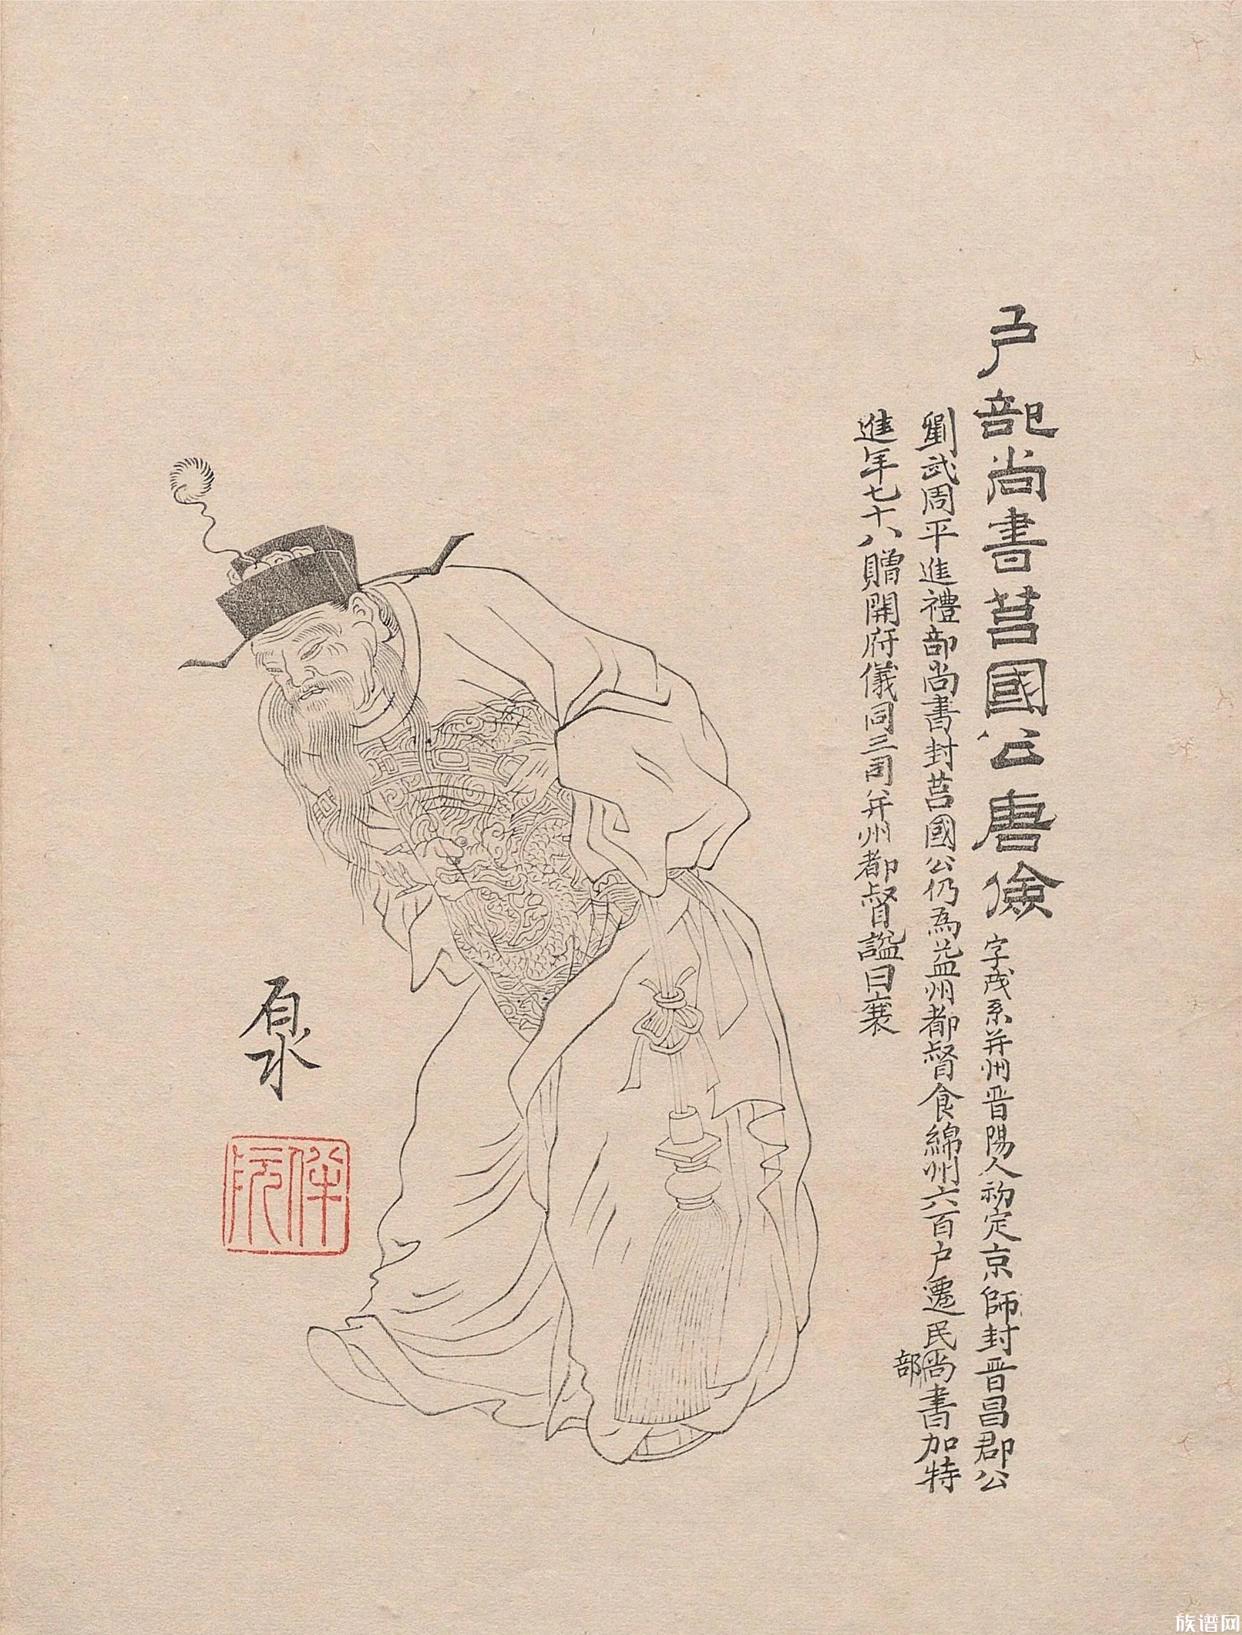 戶部尚書莒國公唐儉 字茂系并州晋陽人初定京師封晋昌郡公
劉武周平進禮部尚書封莒國公仍為益州都督食綿州六百户遷民部尚書加特
進年七十八贈開府儀同三司并州都督謚曰襄
伴阮
族谱网